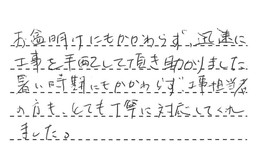 お盆明けにもかかわらず、迅速に
工事を手配して頂き助かりました
暑い時期にもかかわらず、工事担当
の方も、とても丁寧に対応してくれ
ました。